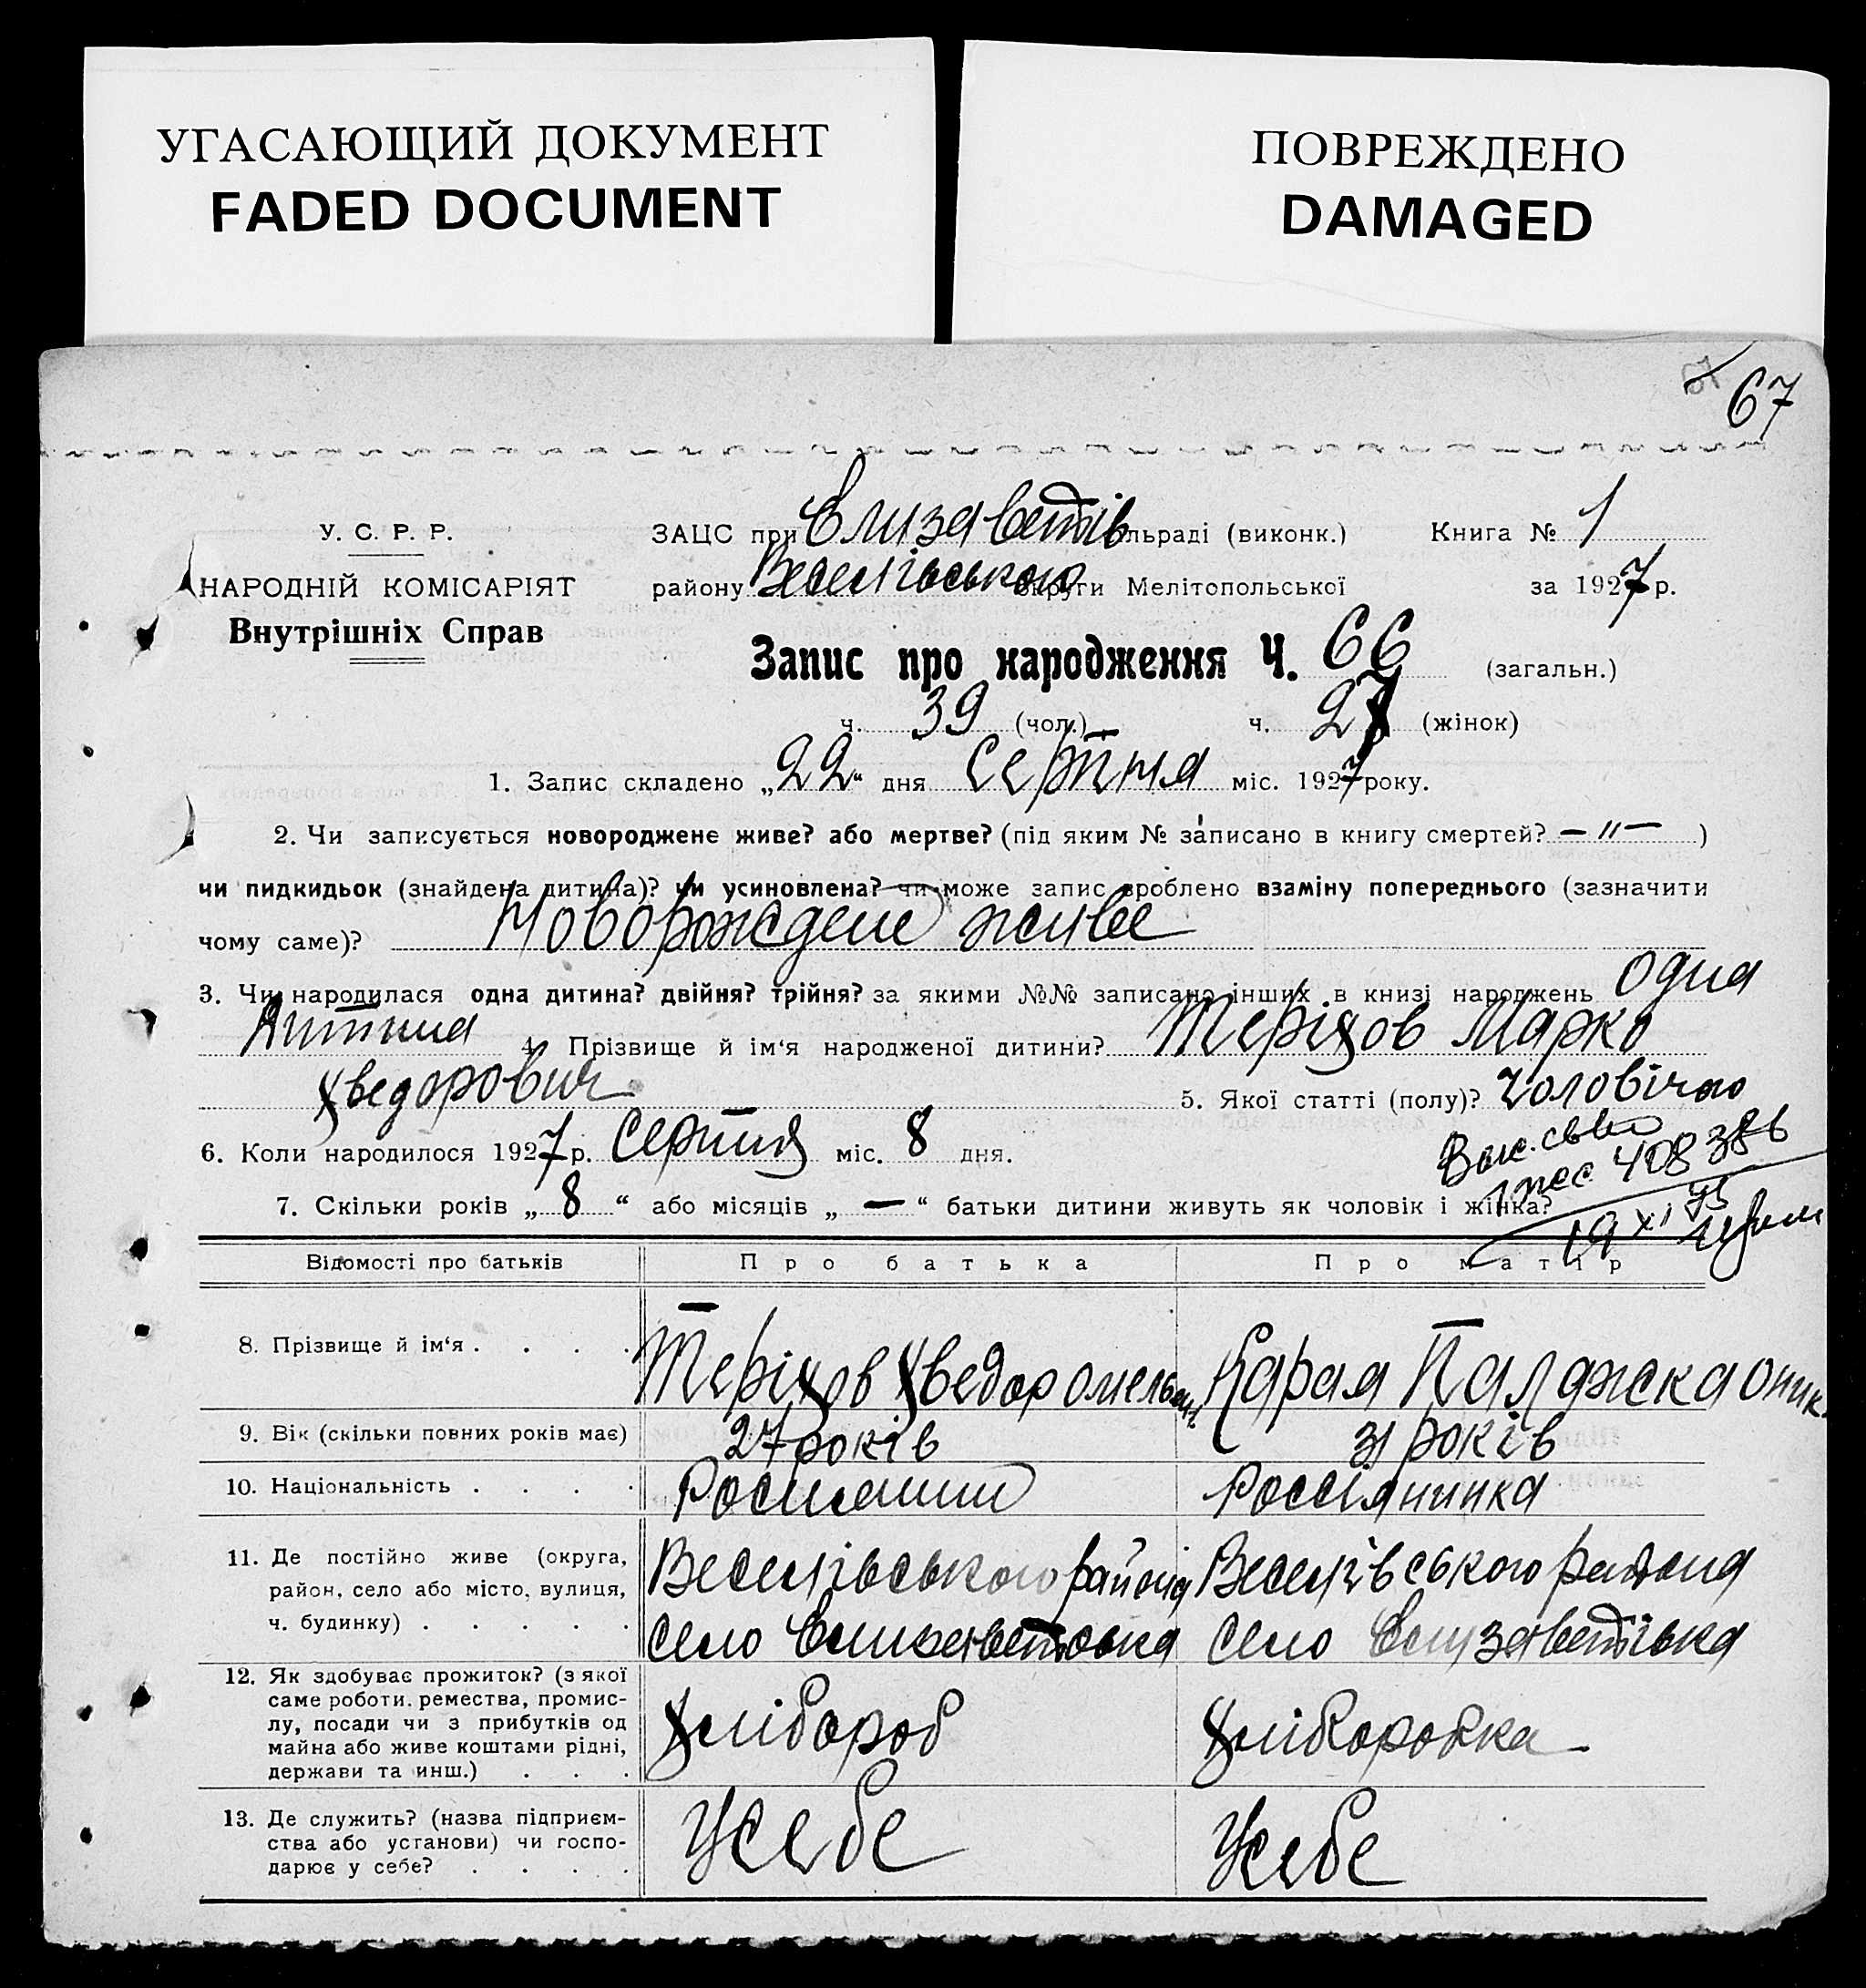 УГАСАЮЩИЙ ДОКУМЕНТ
FADED DOCUMENT
ПОВРЕЖДЕНО
DAMAGED
67
У. С. Р. Р.
НАРОДНІЙ КОМІСАРІЯТ
Внутрішніх Справ
ЗАЦС при Єлизаветів льраді (виконк.) Книга № 1
району Веселівського округи Мелітопольської за 1927 р.
Запис про народження Ч. 66 (загальн.)
ч. 39 (чол.) ч. 27 (жінок)
1. Запис складено „22“ дня Серпня міс. 1927 року.
2. Чи записується новороджене живе? або мертве? (під яким № записано в книгу смертей? — „ — )
чи пидкидьок (знайдена дитина)? чи усиновлена? чи може запис зроблено взаміну попереднього (зазначити
чому саме)? Новорождене живее
3. Чи народилася одна дитина? двійня? трійня? за якими №№ записано інших в книзі народжень одна
Дитина 4. Прізвище й ім‘я народженої дитини? Теріхов Марко
Хведорович 5. Якої статті (полу)? чоловічою
6. Коли народилося 1927 р. Серпня міс. 8 дня.
7. Скільки років „ 8 “ або місяців „ — “ батьки дитини живуть як чоловік і жінка?
Відомості про батьків Про батька Про матір
8. Прізвище й ім‘я . . . . Теріхов Хведор Омельян.
9. Вік (скільки повних років має) 27 років 31 років
10. Національність . . . . Россіянинка
11. Де постійно живе (округа, район, село або місто, вулиця, ч. будинку) . . . . .
Веселівського района Веселівського района
село Елизаветовка село Єлизаветівка
12. Як здобуває прожиток? (з якої саме роботи, ремества, промислу, посади чи з прибутків од майна або живе коштами рідні, держави та инш.) . . .
Хлібороб Хліборобка
13. Де служить? (назва підприємства або установи) чи господарює у себе? . . . .
Усебе Усебе